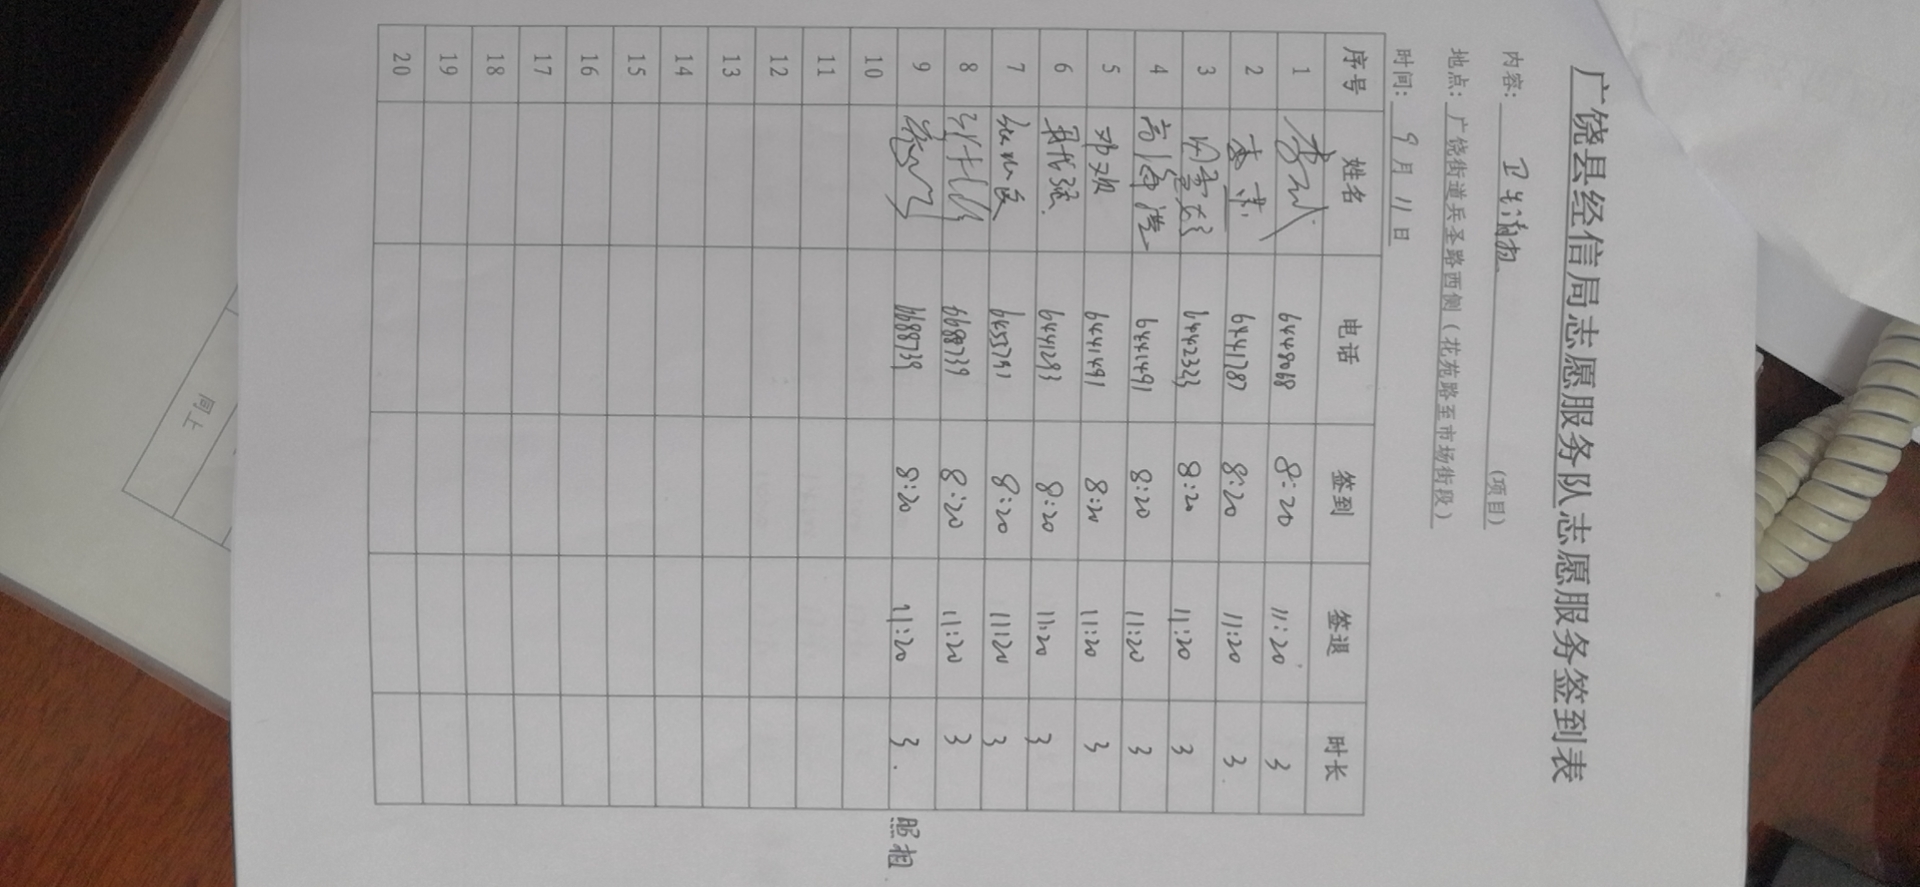 广饶县经信局志愿服务队志愿服务签到表
内容: 卫生清扫 (项目)
地点: 广饶街道兵圣路西侧（花苑路至市场街段）
时间: 9月11日
序号 姓名 电话 签到 签退 时长
1 6448068 8:20 11:20 3
2 6441787 8:20 11:20 3
3 6442323 8:20 11:20 3
4 高海莹 6441491 8:20 11:20 3
5 6441491 8:20 11:20 3
6 6441293 8:20 11:20 3
7 6455791 8:20 11:20 3
8 6688739 8:20 11:20 3
9 6688739 8:20 11:20 3. 照相
10
11
12
13
14
15
16
17
18
19
20
同上